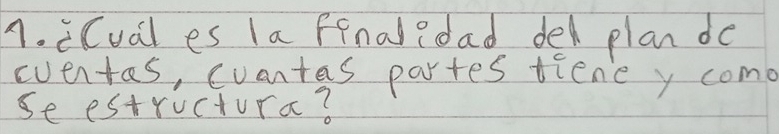 1. ¿Cuál es la finalidad del plan de
cuentas, cuantas partes tiene y como
se estructura?